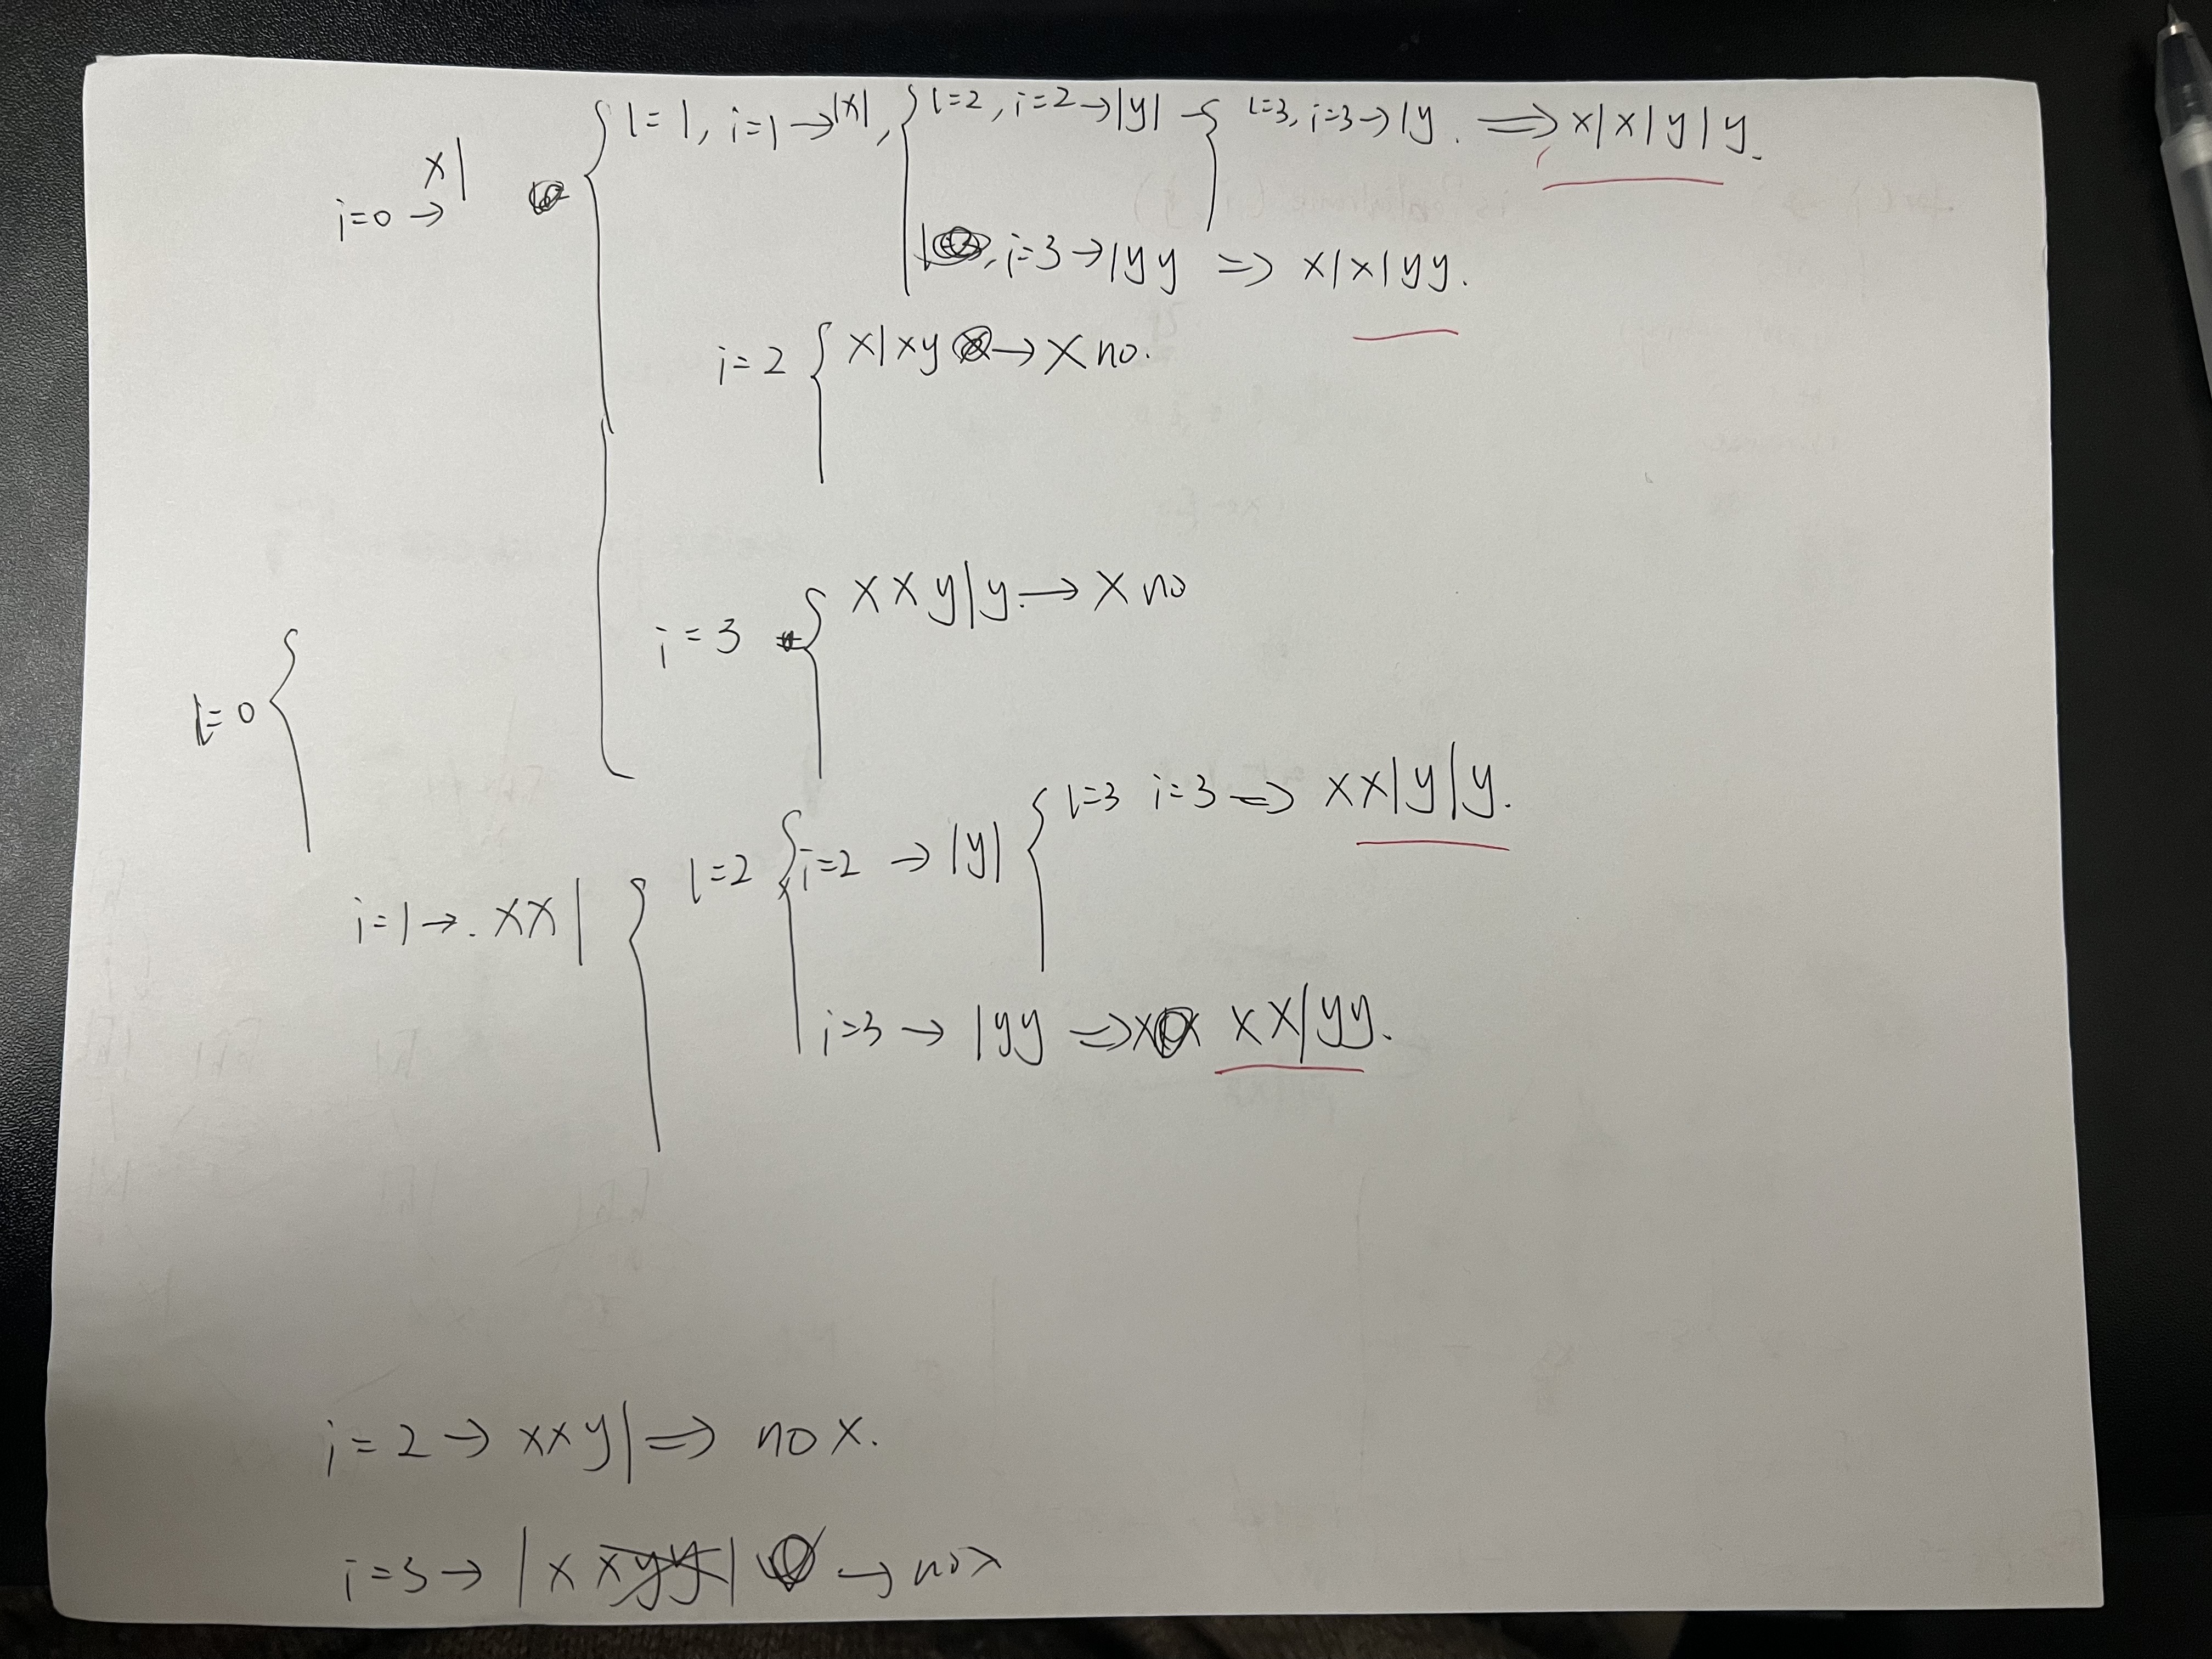 x|
i=0 →
l=1, i=1 → |x|, l=2, i=2 → |y| l=3, i=3 → |y. ⇒ x|x|y|y.
i=3 → |yy ⇒ x|x|yy.
i=2 x|xy → X no.
i=3 xxy|y. → X no
l=0
i=1 → . xx| l=2 i=2 → |y| l=3 i=3 ⇒ xx|y|y.
i=3 → |yy ⇒ xx|yy.
i=2 → xxy| ⇒ no x.
i=3 → |xxyy| → no x